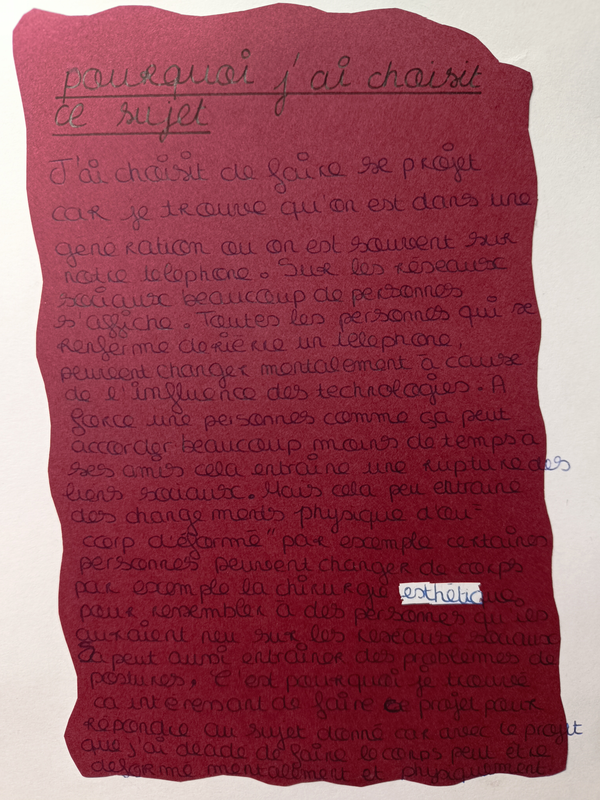 pourquoi j'ai choisit
ce sujet
J'ai choisit de faire se projet
car je trouve qu'on est dans une
géné ration ou on est souvent sur
notre telephone. Sur les réseaux
sociaux beaucoup de personnes
s'affiche. Toutes les personnes qui se
renferme derierre un telephone,
peuvent changer mentalement à cause
de l'influence des technologies. A
force une personnes comme ça peut
accorder beaucoup moins de temps à
ses amis cela entraine une rupture des
liens sociaux. Mais cela peu entrainé
des change ments physique d'ou "
corp déformé" par exemple certaines
personnes peuvent changer de corps
par exemple la chirurgie esthétique
pour ressembler à des personnes qu'ils
auraient neu sur les réseaux sociaux
Ca peut aussi entrainer des problèmes de
postures. C'est pourquoi je trouve
ca interessant de faire ce projet pour
répondre au sujet donné car avec le projet
que j'ai décidé de faire le corps peut être
déformé mentalement et physiquement.